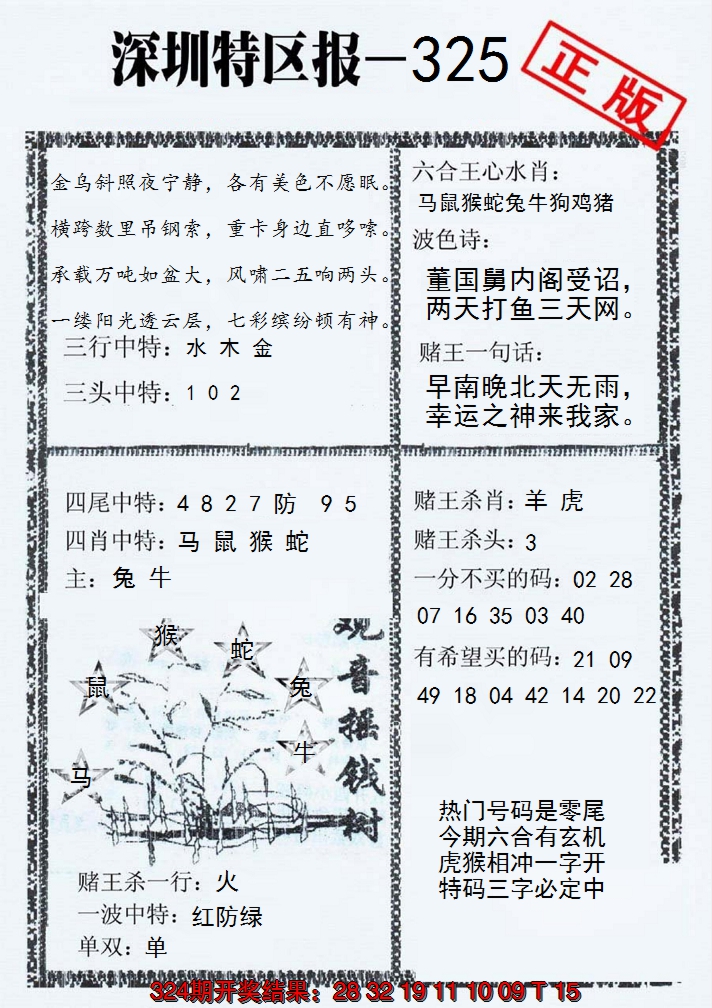 深圳特区报-325
正版
金鸟斜照夜宁静，各有美色不愿眠。
横跨数里吊钢索，重卡身边直哆嗦。
承载万吨如盆大，风啸二五响两头。
一缕阳光透云层，七彩缤纷顿有神。
三行中特：水 木 金
三头中特：1 0 2
六合王心水肖：
马鼠猴蛇兔牛狗鸡猪
波色诗：
董国舅内阁受诏，
两天打鱼三天网。
赌王一句话：
早南晚北天无雨，
幸运之神来我家。
四尾中特：4 8 2 7 防 9 5
四肖中特：马 鼠 猴 蛇
主：兔 牛
猴
蛇
鼠
兔
牛
马
观音摇钱树
赌王杀一行：火
一波中特：红防绿
单双：单
赌王杀肖：羊 虎
赌王杀头：3
一分不买的码：02 28
07 16 35 03 40
有希望买的码：21 09
49 18 04 42 14 20 22
热门号码是零尾
今期六合有玄机
虎猴相冲一字开
特码三字必定中
324期开奖结果：28 32 19 11 10 09 T 15